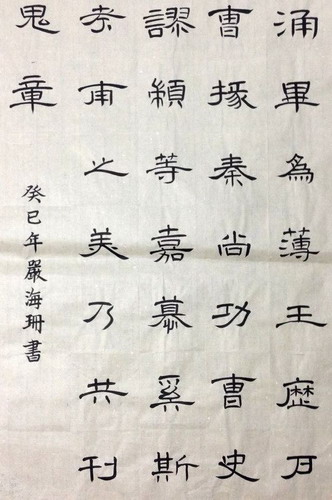 涌畢為薄王歴
曹掾秦尚功曹史
謬等嘉慕奚斯
考甫之美乃共刊
章
癸巳年嚴海珊書